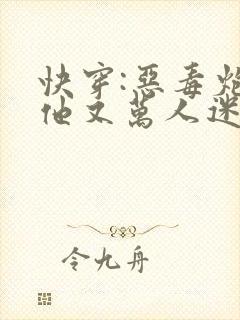 快穿:惡毒炮
他又萬人迷
令九舟